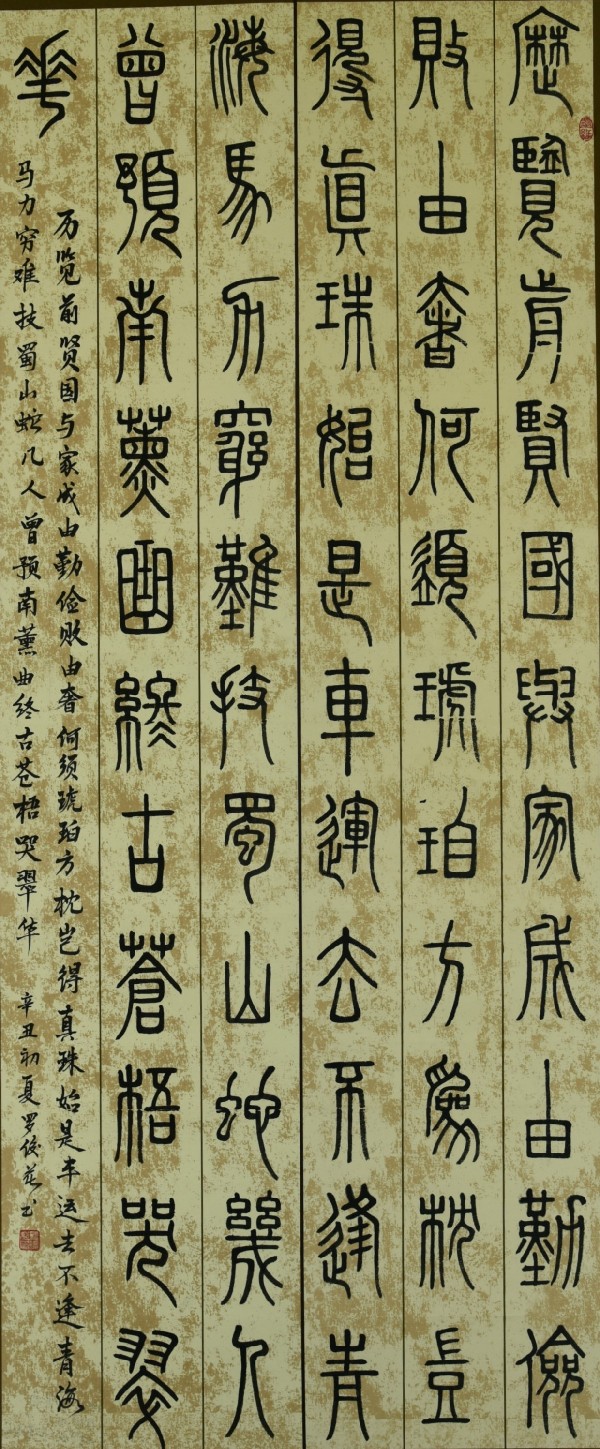 歷覽前賢國與家成由勤儉
敗由奢何須琥珀方為枕豈
得眞珠始是車運去不逢青
海馬力窮難技蜀山蛇幾人
曾預南薰曲終古蒼梧哭翠
華
历览前贤国与家成由勤俭败由奢何须琥珀方枕岂得真珠始是车运去不逢青海
马力穷难技蜀山蛇几人曾预南薰曲终古苍梧哭翠华 辛丑初夏罗俊书